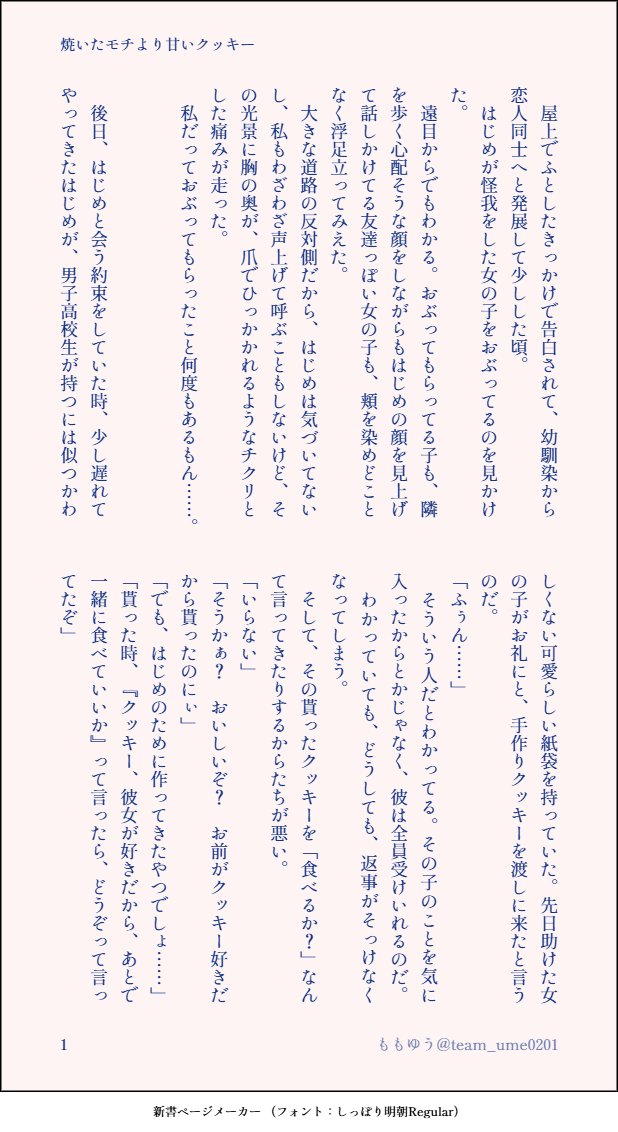 焼いたモチより甘いクッキー
　屋上でふとしたきっかけで告白されて、幼馴染から
恋人同士へと発展して少しした頃。
　はじめが怪我をした女の子をおぶってるのを見かけ
た。
　遠目からでもわかる。おぶってもらってる子も、隣
を歩く心配そうな顔をしながらもはじめの顔を見上げ
て話しかけてる友達っぽい女の子も、頬を染めどこと
なく浮足立ってみえた。
　大きな道路の反対側だから、はじめは気づいてない
し、私もわざわざ声上げて呼ぶこともしないけど、そ
の光景に胸の奥が、爪でひっかかれるようなチクリと
した痛みが走った。
　私だっておぶってもらったこと何度もあるもん……。
　後日、はじめと会う約束をしていた時、少し遅れて
やってきたはじめが、男子高校生が持つには似つかわ
しくない可愛らしい紙袋を持っていた。先日助けた女
の子がお礼にと、手作りクッキーを渡しに来たと言う
のだ。
「ふぅん……」
　そういう人だとわかってる。その子のことを気に
入ったからとかじゃなく、彼は全員受けいれるのだ。
　わかっていても、どうしても、返事がそっけなく
なってしまう。
　そして、その貰ったクッキーを「食べるか？」なん
て言ってきたりするからたちが悪い。
「いらない」
「そうかぁ？　おいしいぞ？　お前がクッキー好きだ
から貰ったのにぃ」
「でも、はじめのために作ってきたやつでしょ……」
「貰った時、『クッキー、彼女が好きだから、あとで
一緒に食べていいか』って言ったら、どうぞって言っ
てたぞ」
1
ももゆう@team_ume0201
新書ページメーカー（フォント：しっぽり明朝Regular）